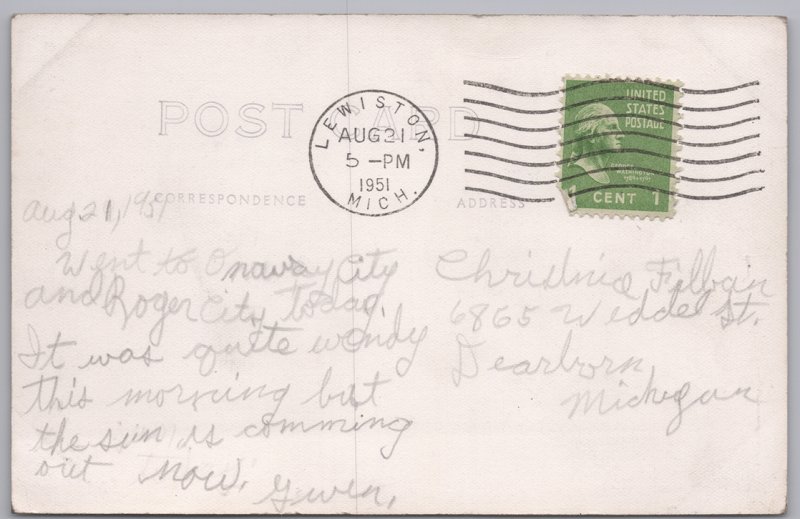 POST CARD
LEWISTON,
AUG 21
5 -PM
1951
MICH.
UNITED
STATES
POSTAGE
GEORGE
WASHINGTON
1 CENT 1
CORRESPONDENCE
ADDRESS
Aug 21, 1951
Went to Onaway City
and Roger City today,
It was quite windy
this morning but
the sun is comming
out now.
Gwen,
Christina Filbain
6865 Weddel St.
Dearborn,
Michigan